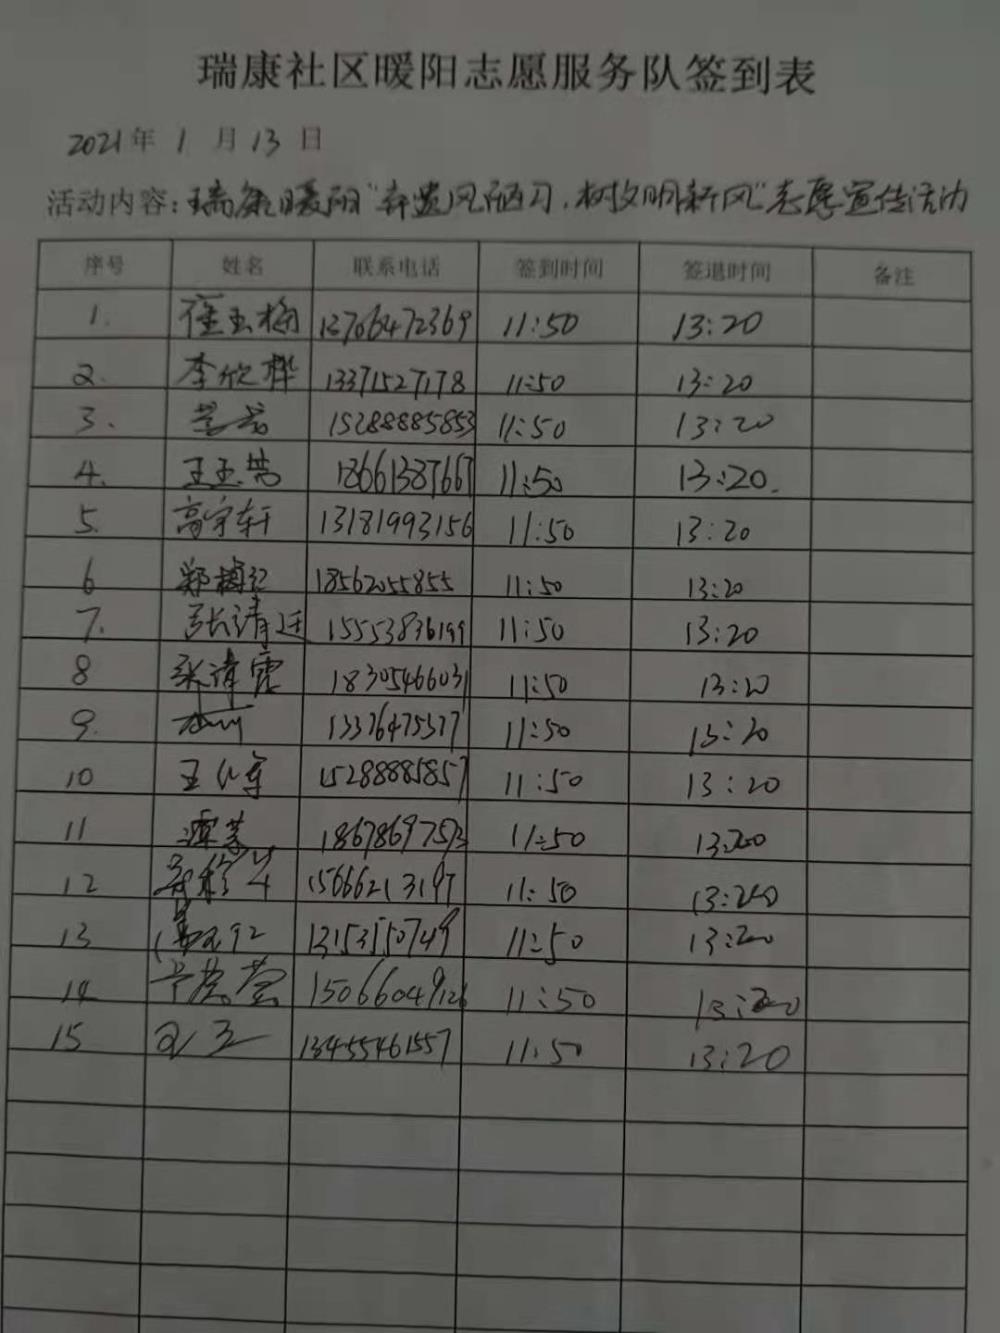 瑞康社区暖阳志愿服务队签到表
2021年 1 月 13 日
活动内容：瑞康暖阳"弃遗风陋习，树文明新风"志愿宣传活动
序号 姓名 联系电话 签到时间 签退时间 备注
1. 崔玉梅 13706472369 11:50 13:20
2. 李欣桦 13371527178 11:50 13:20
3. 15288885853 11:50 13:20
4. 18661387667 11:50 13:20.
5. 高宇轩 13181993156 11:50 13:20
6 18562055855 11:50 13:20
7. 张清廷 15553836199 11:50 13:20
8 18305466031 11:50 13:20
9. 13376475377 11:50 13:20
10 15288885857 11:50 13:20
11 谭英 18678697573 11:50 13:20
12 15666213197 11:50 13:20
13 13153150749 11:50 13:20
14 15066049126 11:50 13:20
15 13455461557 11:50 13:20